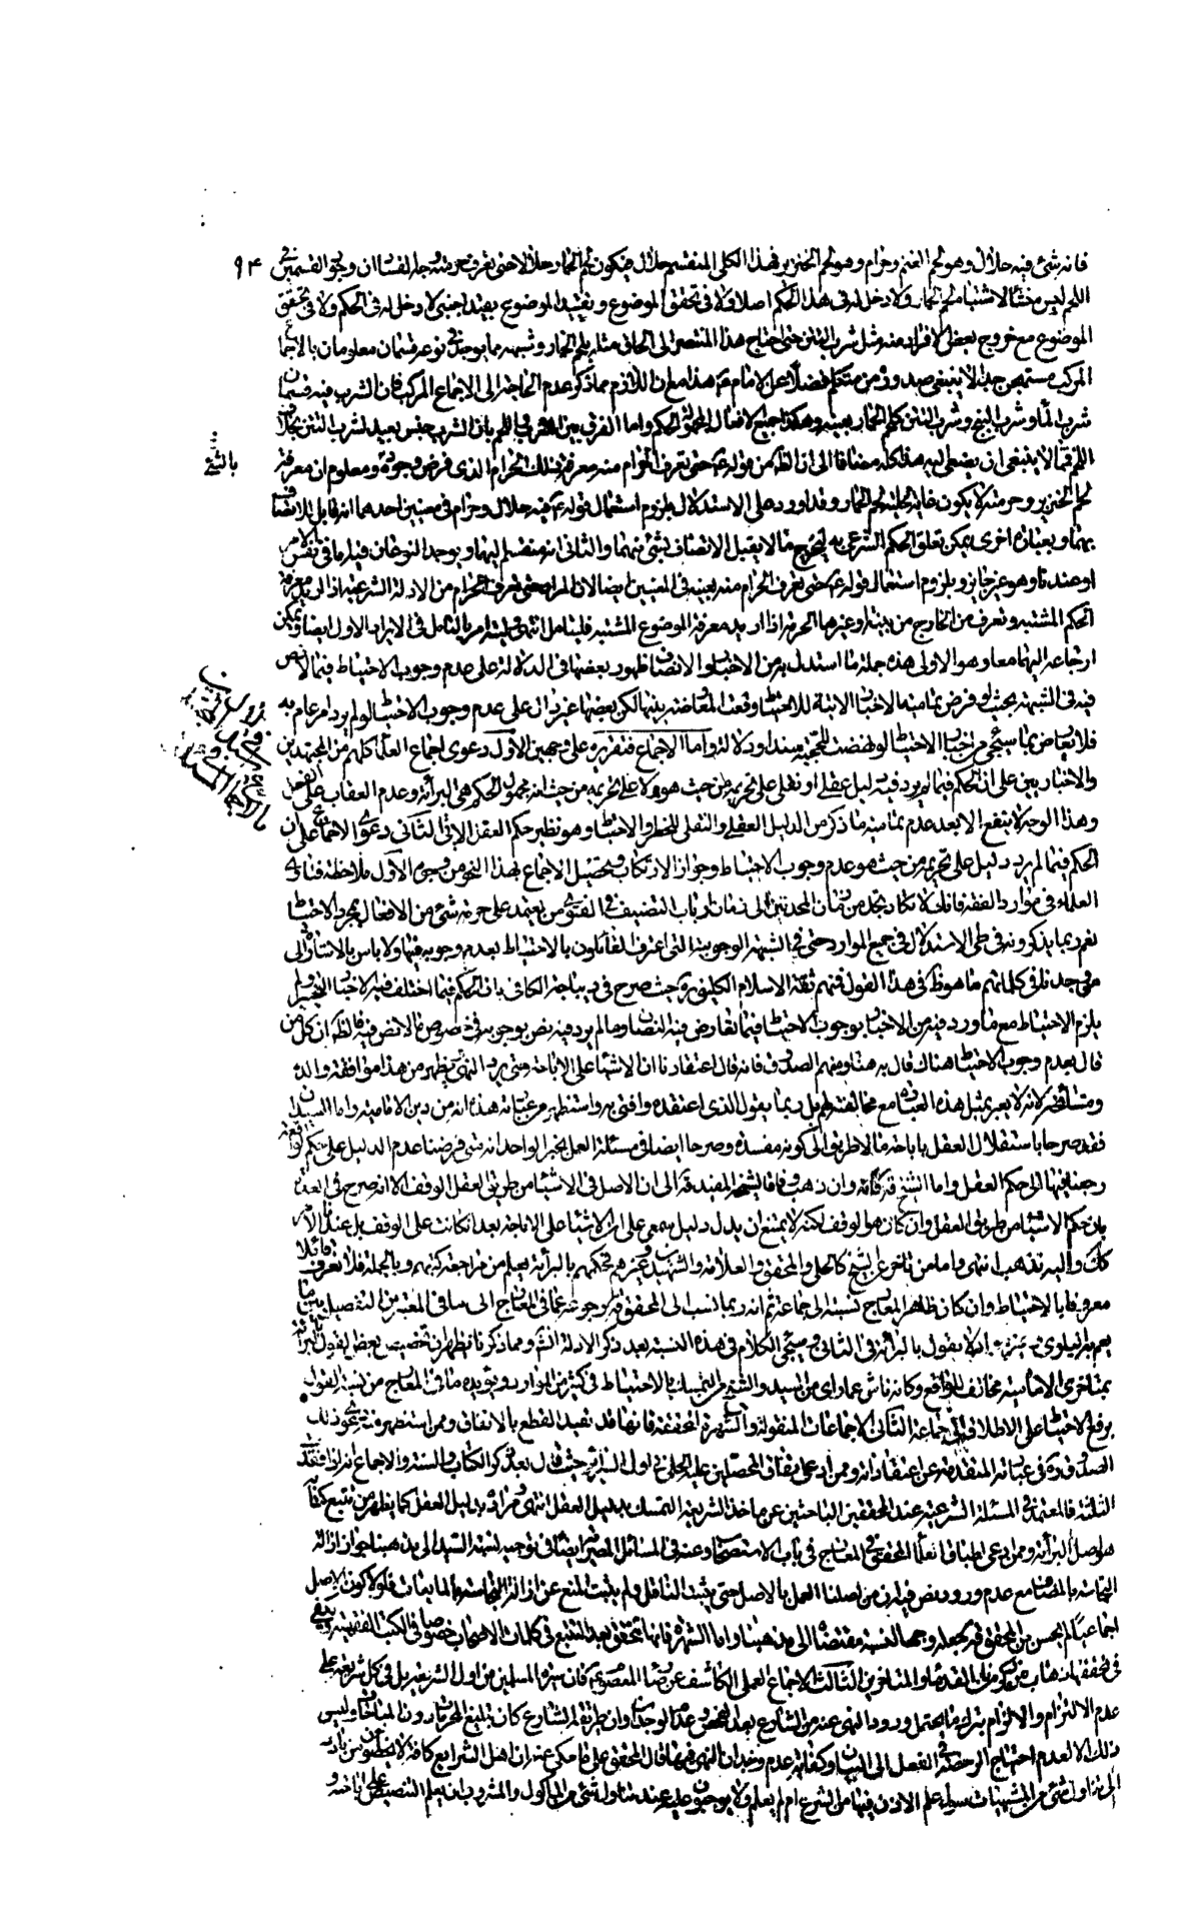 فانه شئ فيه حلال وهو لحم الغنم وحرام وهو لحم الخنزير فهذا الكلى المنقسم حلال فيكون لحم الحمار حلالا حتى تعرف حرمته وجود القسمين فى ٩٤
اللحم ليس منشأ لاشتباه لحم الحمار ولا دخل له فى هذا الحكم اصلا ولا فى تحقق الموضوع وتقييد الموضوع بقيد اجنبى لا دخل له فى الحكم ولا فى تحقق
الموضوع مع خروج بعض الافراد منه مثل شرب التتن حتى احتاج هذا المنتصر الى الحاق مثله بلحم الحمار وشبهه مما يوجد فى نوعه قسمان معلومان بالاجماع
المركب مستهجن جدا لا ينبغى صدوره من متكلم فضلا عن الامام هذا مع ان اللازم مما ذكر عدم الحاجة الى الاجماع المركب فان الشرب فيه قسمان
شرب الماء وشرب البنج وشرب التتن كلحم الحمار بعينه وهكذا جميع الافعال المجهولة الحكم واما الفرق بين الشرب واللحم بان الشرب جنس بعيد لشرب التتن بخلاف
اللحم فمما لا ينبغى ان يصغى اليه هذا كله مضافا الى ان الظ من قوله حتى تعرف الحرام منه معرفة ذلك الحرام الذى فرض وجوده ومعلوم ان معرفة
بالشئ
لحم الخنزير وحرمته لا يكون غاية لحلية لحم الحمار وقد اورد على الاستدلال بلزوم استعمال قوله فيه حلال وحرام فى معنيين احدهما انه قابل للاتصاف
بهما وبعبارة اخرى يمكن تعلق الحكم الشرعى به ليخرج ما لا يقبل الاتصاف بشئ منهما والثانى انه منقسم اليهما ويوجد النوعان فيه اما فى نفس الامر
او عندنا وهو غير جايز وبلزوم استعمال قوله حتى تعرف الحرام منه بعينه فى المعنيين ايضا لان المراد حتى تعرف الحرام من الادلة الشرعية اذا اريد معرفة
الحكم المشتبه وتعرف من الخارج من بينة او غيرها الحرمة اذا اريد معرفة الموضوع المشتبه فليتامل انتهى وليته امر بالتامل فى الايراد الاول ايضا ويمكن
ارجاعه اليهما معا وهو الاولى هذه جملة ما استدل به من الاخبار والانصاف ظهور بعضها فى الدلالة على عدم وجوب الاحتياط فيما لا نص
فيه فى الشبهة بحيث لو فرض تمامية الاخبار الاتية للاحتياط وقعت المعارضة بينها لكن بعضها غير دال الا على عدم وجوب الاحتياط لو لم يرد امر عام به
فلا يعارض بما سيجئ من اخبار الاحتياط لو نهضت للحجية سندا ودلالة واما الاجماع فتقريره على وجهين الاول دعوى اجماع العلماء كلهم من المجتهدين
والاخباريين على ان الحكم فيما لم يرد فيه دليل عقلى او نقلى على تحريمه من حيث هو ولا على تحريمه من حيث انه مجهول الحكم هى البرائة وعدم العقاب على الفعل
وهذا الوجه لا ينفع الا بعد عدم تمامية ما ذكر من الدليل العقلى والنقلى للحظر والاحتياط وهو نظير حكم العقل الاتى الثانى دعوى الاجماع على ان
الحكم فيما لم يرد دليل على تحريمه من حيث هو عدم وجوب الاحتياط وجواز الارتكاب وتحصيل الاجماع بهذا النحو من وجوه الاول ملاحظة فتاوى
العلماء فى موارد الفقه فانك لا تكاد تجد من زمان المحدثين الى زمان ارباب التصنيف فى الفتوى من يعتمد على حرمة شئ من الافعال بمجرد الاحتياط
نعم ربما يذكرونه فى طى الاستدلال فى جميع الموارد حتى فى الشبهة الوجوبية التى اعترف القائلون بالاحتياط بعدم وجوبه فيها ولا باس بالاشارة الى
من وجدنا فى كلماتهم ما هو ظ فى هذا القول فمنهم ثقة الاسلام الكلينى ره حيث صرح فى ديباجة الكافى بان الحكم فيما اختلف فيه الاخبار التخيير ولم
يلزم الاحتياط مع ما ورد فيه من الاخبار بوجوب الاحتياط فيما تعارض فيه النصان وما لم يرد فيه نص بوجوبه فى خصوص ما لا نص فيه فالظ ان كل من
قال بعدم وجوب الاحتياط هناك قال به هنا ومنهم الصدوق فانه قال اعتقادنا ان الاشياء على الاباحة حتى يرد النهى ويظهر من هذا موافقة والده
ومشايخه لانه لا يعبر بمثل هذه العبارة مع مخالفته لهم بل ربما يقول الذى اعتقده وافتى به واستظهر من عبارته هذه انه من دين الامامية واما السيدان
فقد صرحا باستقلال العقل باباحة ما لا طريق الى كونه مفسدة وصرحا ايضا فى مسئلة العمل بخبر الواحد انه متى فرضنا عدم الدليل على حكم الواقعة
رجعنا فيها الى حكم العقل واما الشيخ قده فانه وان ذهب وفاقا لشيخه المفيد قده الى ان الاصل فى الاشياء من طريق العقل الوقف الا انه صرح فى العدة
بان حكم الاشياء من طريق العقل وان كان هو الوقف لكنه لا يمتنع ان يدل دليل سمعى على ان الاشياء على الاباحة بعد ان كانت على الوقف بل عندنا الامر
كذلك واليه نذهب انتهى واما من تاخر عن الشيخ كالحلى والمحقق والعلامة والشهيدين وغيرهم فحكمهم بالبرائة يعلم من مراجعة كتبهم وبالجملة فلا نعرف قائلا
معروفا بالاحتياط وان كان ظاهر المعارج نسبته الى جماعة ثم انه ربما نسب الى المحقق قده رجوعه عما فى المعارج الى ما فى المعتبر من التفصيل بين ما
يعم به البلوى وغيره وانه لا يقول بالبرائة فى الثانى وسيجئ الكلام فى هذه النسبة بعد ذكر الادلة انش ومما ذكرنا يظهر ان تخصيص بعض القول بالبرائة
بمتاخرى الامامية مخالف للواقع وكانه ناش عما راى من السيد والشيخ من التمسك بالاحتياط فى كثير من الموارد ويؤيده ما فى المعارج من نسبة القول
برفع الاحتياط على الاطلاق الى جماعة الثانى الاجماعات المنقولة والشهرة المحققة فانها قد تفيد القطع بالاتفاق وممن استظهر منه دعوى ذلك
الصدوق ره فى عبارته المتقدمة عن اعتقاداته وممن ادعى اتفاق المحصلين عليه الحلى فى اول السرائر حيث قال بعد ذكر الكتاب والسنة والاجماع انه اذا فقدت
الثلثة فالمعتمد فى المسئلة الشرعية عند المحققين الباحثين عن ماخذ الشريعة التمسك بدليل العقل انتهى ومراده بدليل العقل كما يظهر من تتبع كتابه
هو اصل البرائة وممن ادعى اطباق العلماء المحقق فى المعارج فى باب الاستصحاب وعنه فى المسائل المصرية ايضا فى توجيه نسبة السيد الى مذهبنا جواز ازالة
النجاسة بالمضاف مع عدم ورود نص فيه ان من اصلنا العمل بالاصل حتى يثبت الناقل ولم يثبت المنع عن ازالة النجاسة بالمايعات فلولا كون الاصل
اجماعيا لم يحسن من المحقق قده جعله وجها لنسبة مقتضاه الى مذهبنا واما الشهرة فانها تتحقق بعد التتبع فى كلمات الاصحاب خصوصا فى الكتب الفقهية ويكفى
فى تحققها ذهاب من ذكرنا من القدماء والمتاخرين الثالث الاجماع العملى الكاشف عن رضا المعصوم فان سيرة المسلمين من اول الشريعة بل فى كل شريعة على
عدم الالتزام والالزام بترك ما يحتمل ورود النهى عنه من الشارع بعد الفحص وعدم الوجدان وان طريقة الشارع كان تبليغ المحرمات دون المباحات وليس
ذلك الا لعدم احتياج الرخصة فى الفعل الى البيان وكفاية عدم وجدان النهى فيها قال المحقق على ما حكى عنه ان اهل الشرايع كافة لا يخطئون من بادر
الى تناول شئ من المشتهيات سواء علم الاذن فيها من الشرع ام لم يعلم ولا يوجبون عليه عند تناول شئ من الماكول والمشروب ان يعلم التنصيص على اباحته و